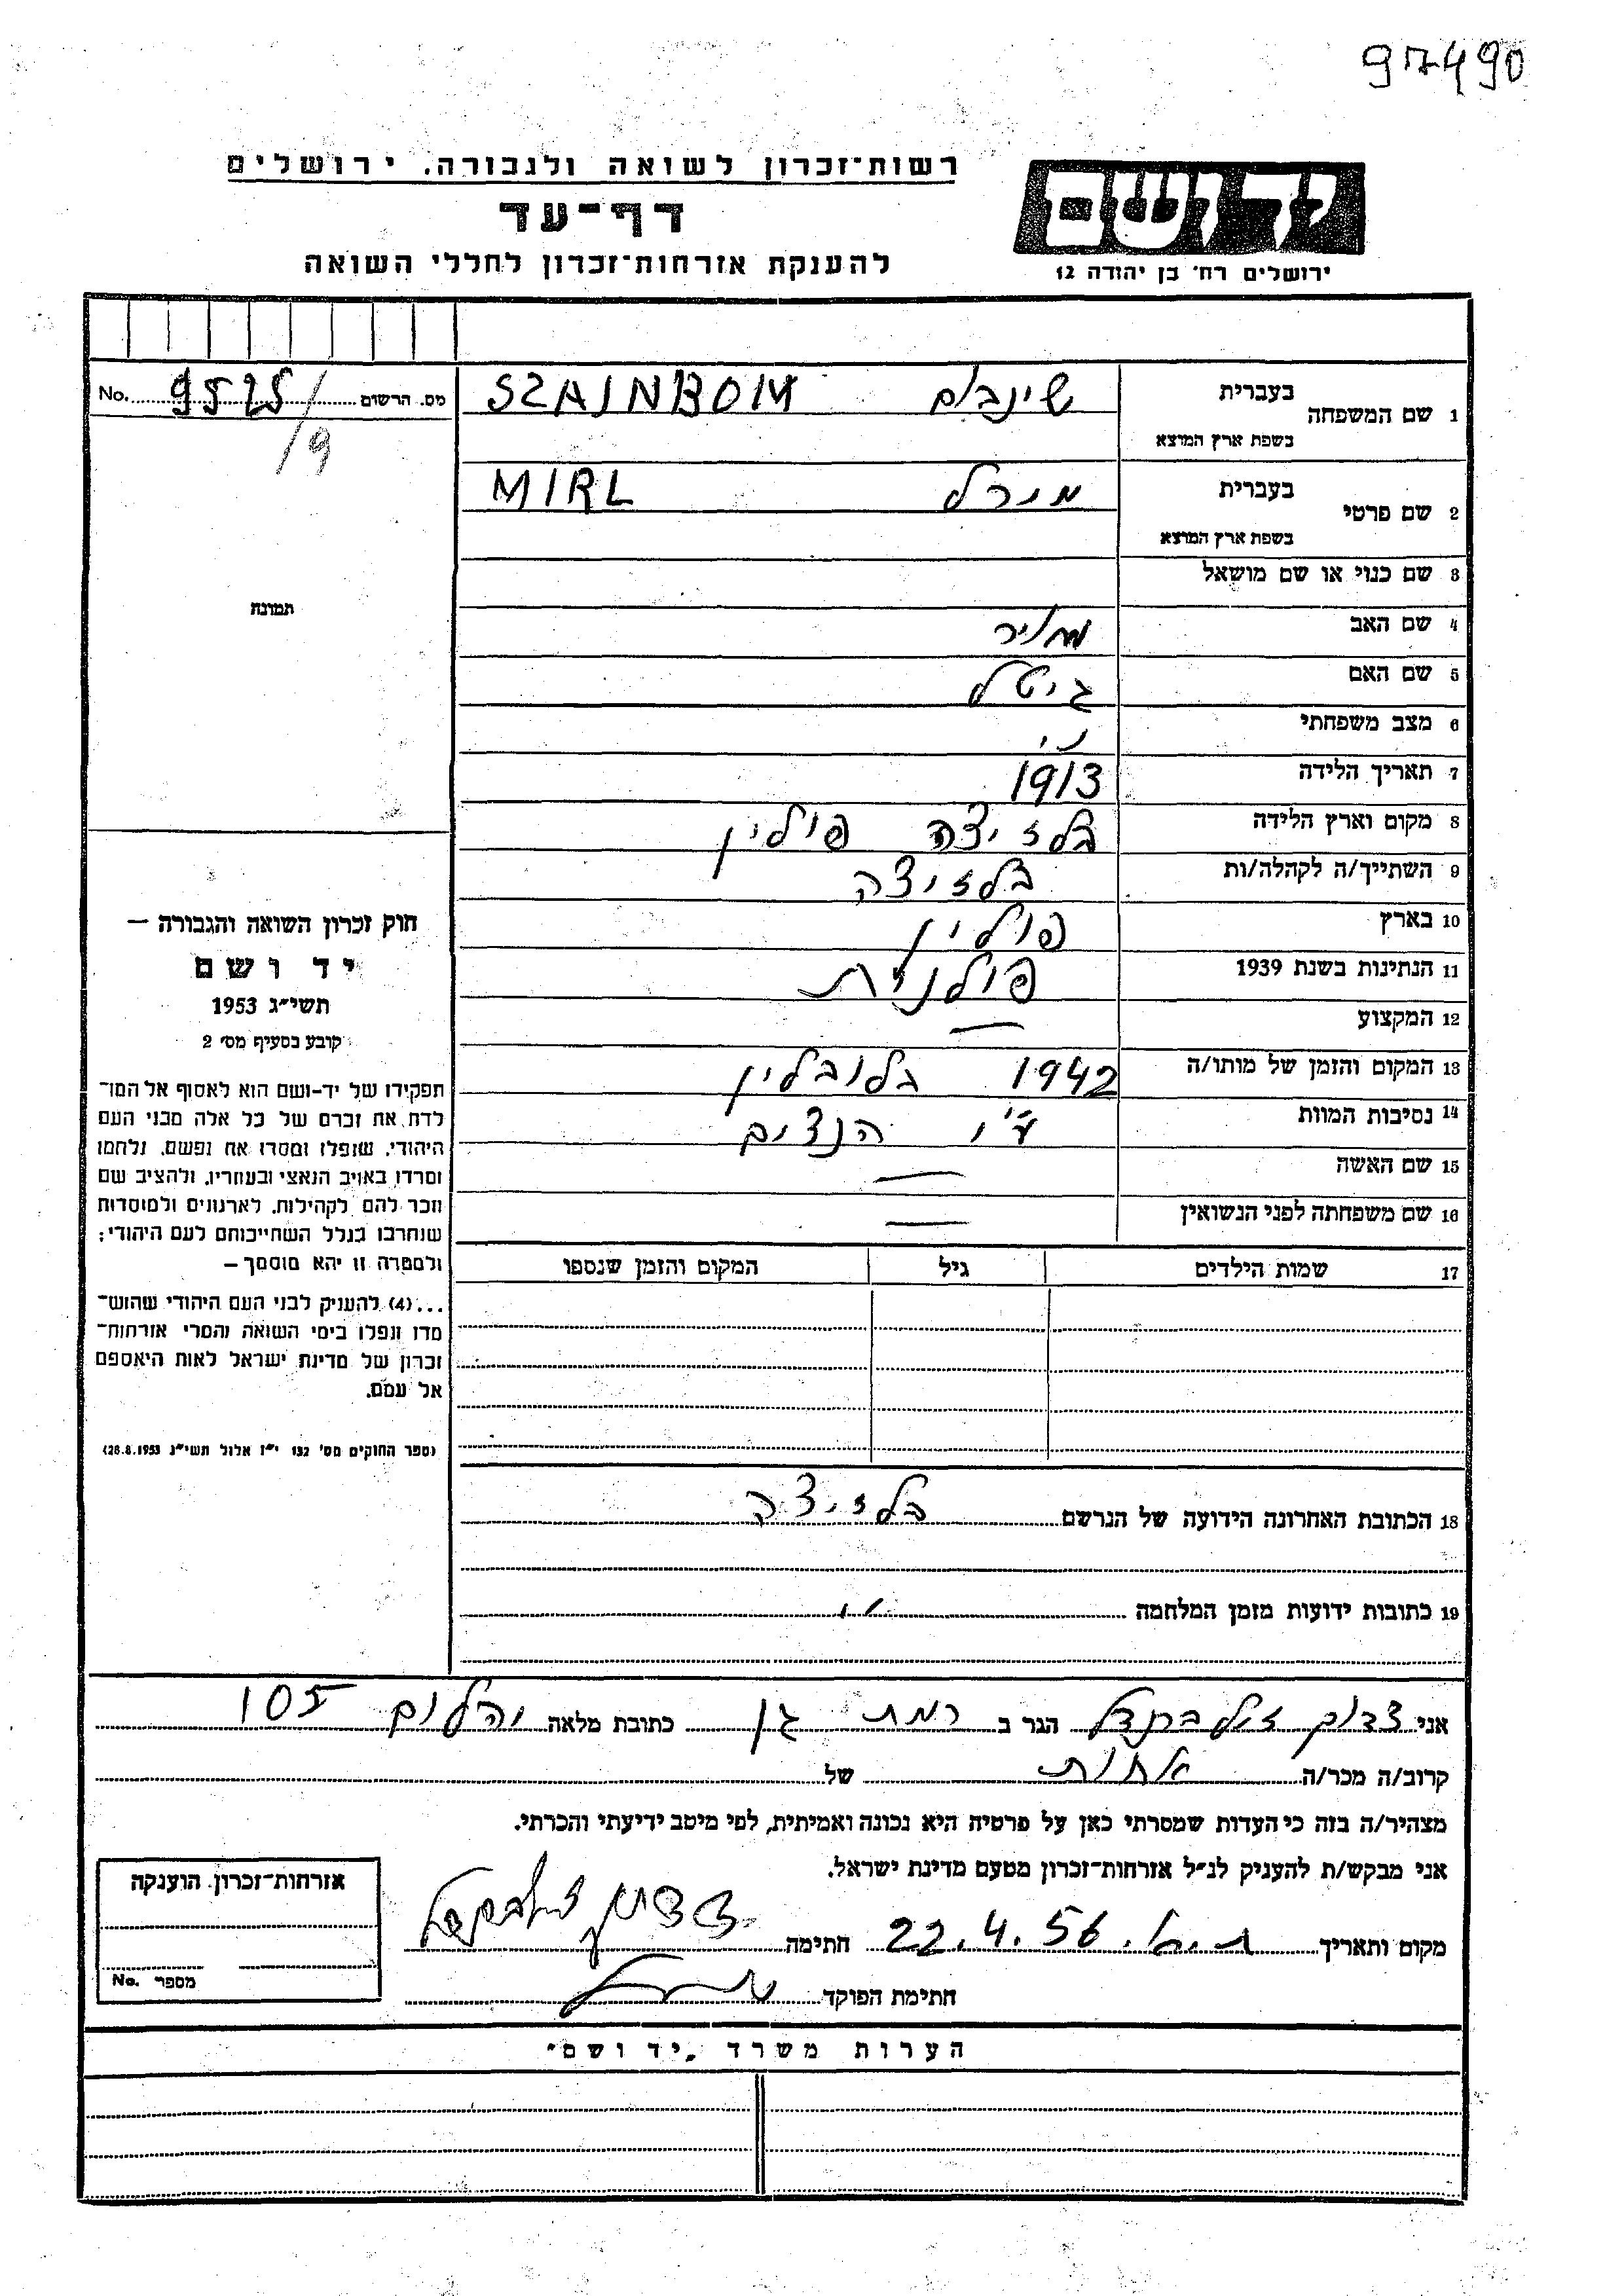 97490
רשות־זכרון לשואה ולגבורה, ירושלים
דף־עד
להענקת אזרחות־זכרון לחללי השואה
יד ושם
ירושלים רח׳ בן יהודה 12
1 שם המשפחה בעברית שינבום SZAINBOM
בשפת ארץ המוצא
מס. הרשום 9525/ No.
19
2 שם פרטי בעברית מירל MIRL
בשפת ארץ המוצא
3 שם כנוי או שם מושאל
תמונה
4 שם האב מאיר
5 שם האם גיטל
6 מצב משפחתי
7 תאריך הלידה 1913
8 מקום וארץ הלידה בלזיצה פולין
9 השתייך/ה לקהלה/ות בלזיצה
10 בארץ פולין
11 הנתינות בשנת 1939 פולנית
12 המקצוע —
13 המקום והזמן של מותו/ה 1942 בלובלין
14 נסיבות המוות ע״י הנצים
15 שם האשה —
16 שם משפחתה לפני הנשואין —
17 שמות הילדים גיל המקום והזמן שנספו
חוק זכרון השואה והגבורה —
יד ושם
תשי״ג 1953
קובע בסעיף מס׳ 2
תפקידו של יד-ושם הוא לאסוף אל המו־
לדת את זכרם של כל אלה מבני העם
היהודי, שנפלו ומסרו את נפשם, נלחמו
ומרדו באויב הנאצי ובעוזריו, ולהציב שם
וזכר להם לקהילות, לארגונים ולמוסדות
שנחרבו בגלל השתייכותם לעם היהודי;
ולמטרה זו יהא מוסמך —
...(4) להעניק לבני העם היהודי שהוש־
מדו ונפלו בימי השואה והמרי אזרחות־
זכרון של מדינת ישראל לאות היאספם
אל עמם.
(ספר החוקים מס׳ 132 י״ז אלול תשי״ג 28.8.1953)
18 הכתובת האחרונה הידועה של הנרשם בלזיצה
19 כתובות ידועות מזמן המלחמה ״
אני צדוק זילברקנדל הגר ב רמת גן כתובת מלאה יהלום 105
קרוב/ה מכר/ה אחות של
מצהיר/ה בזה כי העדות שמסרתי כאן על פרטיה היא נכונה ואמיתית, לפי מיטב ידיעתי והכרתי.
אני מבקש/ת להעניק לנ״ל אזרחות־זכרון מטעם מדינת ישראל.
מקום ותאריך 22.4.56 חתימה
חתימת הפוקד
אזרחות־זכרון הוענקה
מספר No.
הערות משרד „יד ושם״